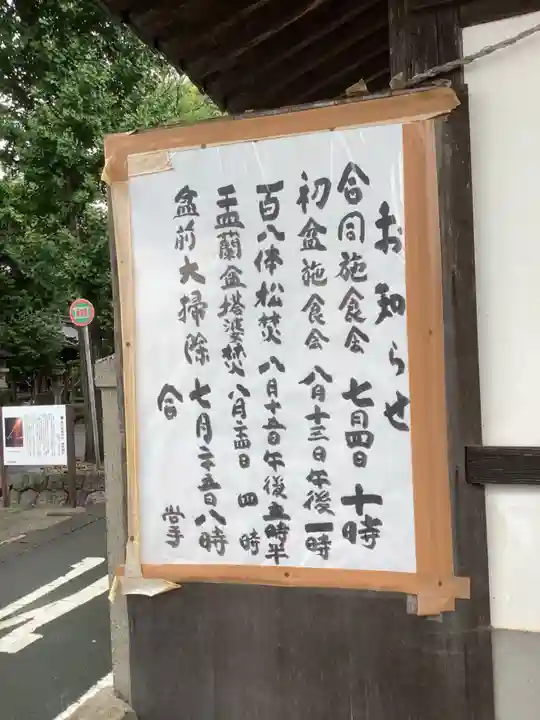 お知らせ
合同施食会 七月四日 十時
初盆施食会 八月十三日午後一時
百八体松焚 八月十五日午後五時半
盂蘭盆塔婆焚 八月二十四日 四時
盆前大掃除 七月二十五日八時
合掌